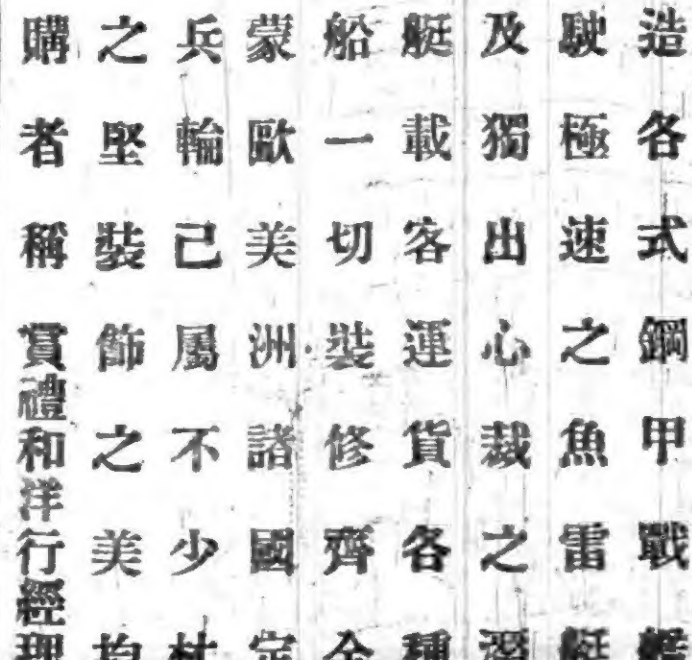 造各式鋼甲戰艦
駛極速之魚雷艇
及獨出心裁之
艇載客運貨各種
船一切裝修齊全
蒙歐美洲諸國定
兵輪己屬不少材
之堅裝飾之美均
購者稱賞禮和洋行經理